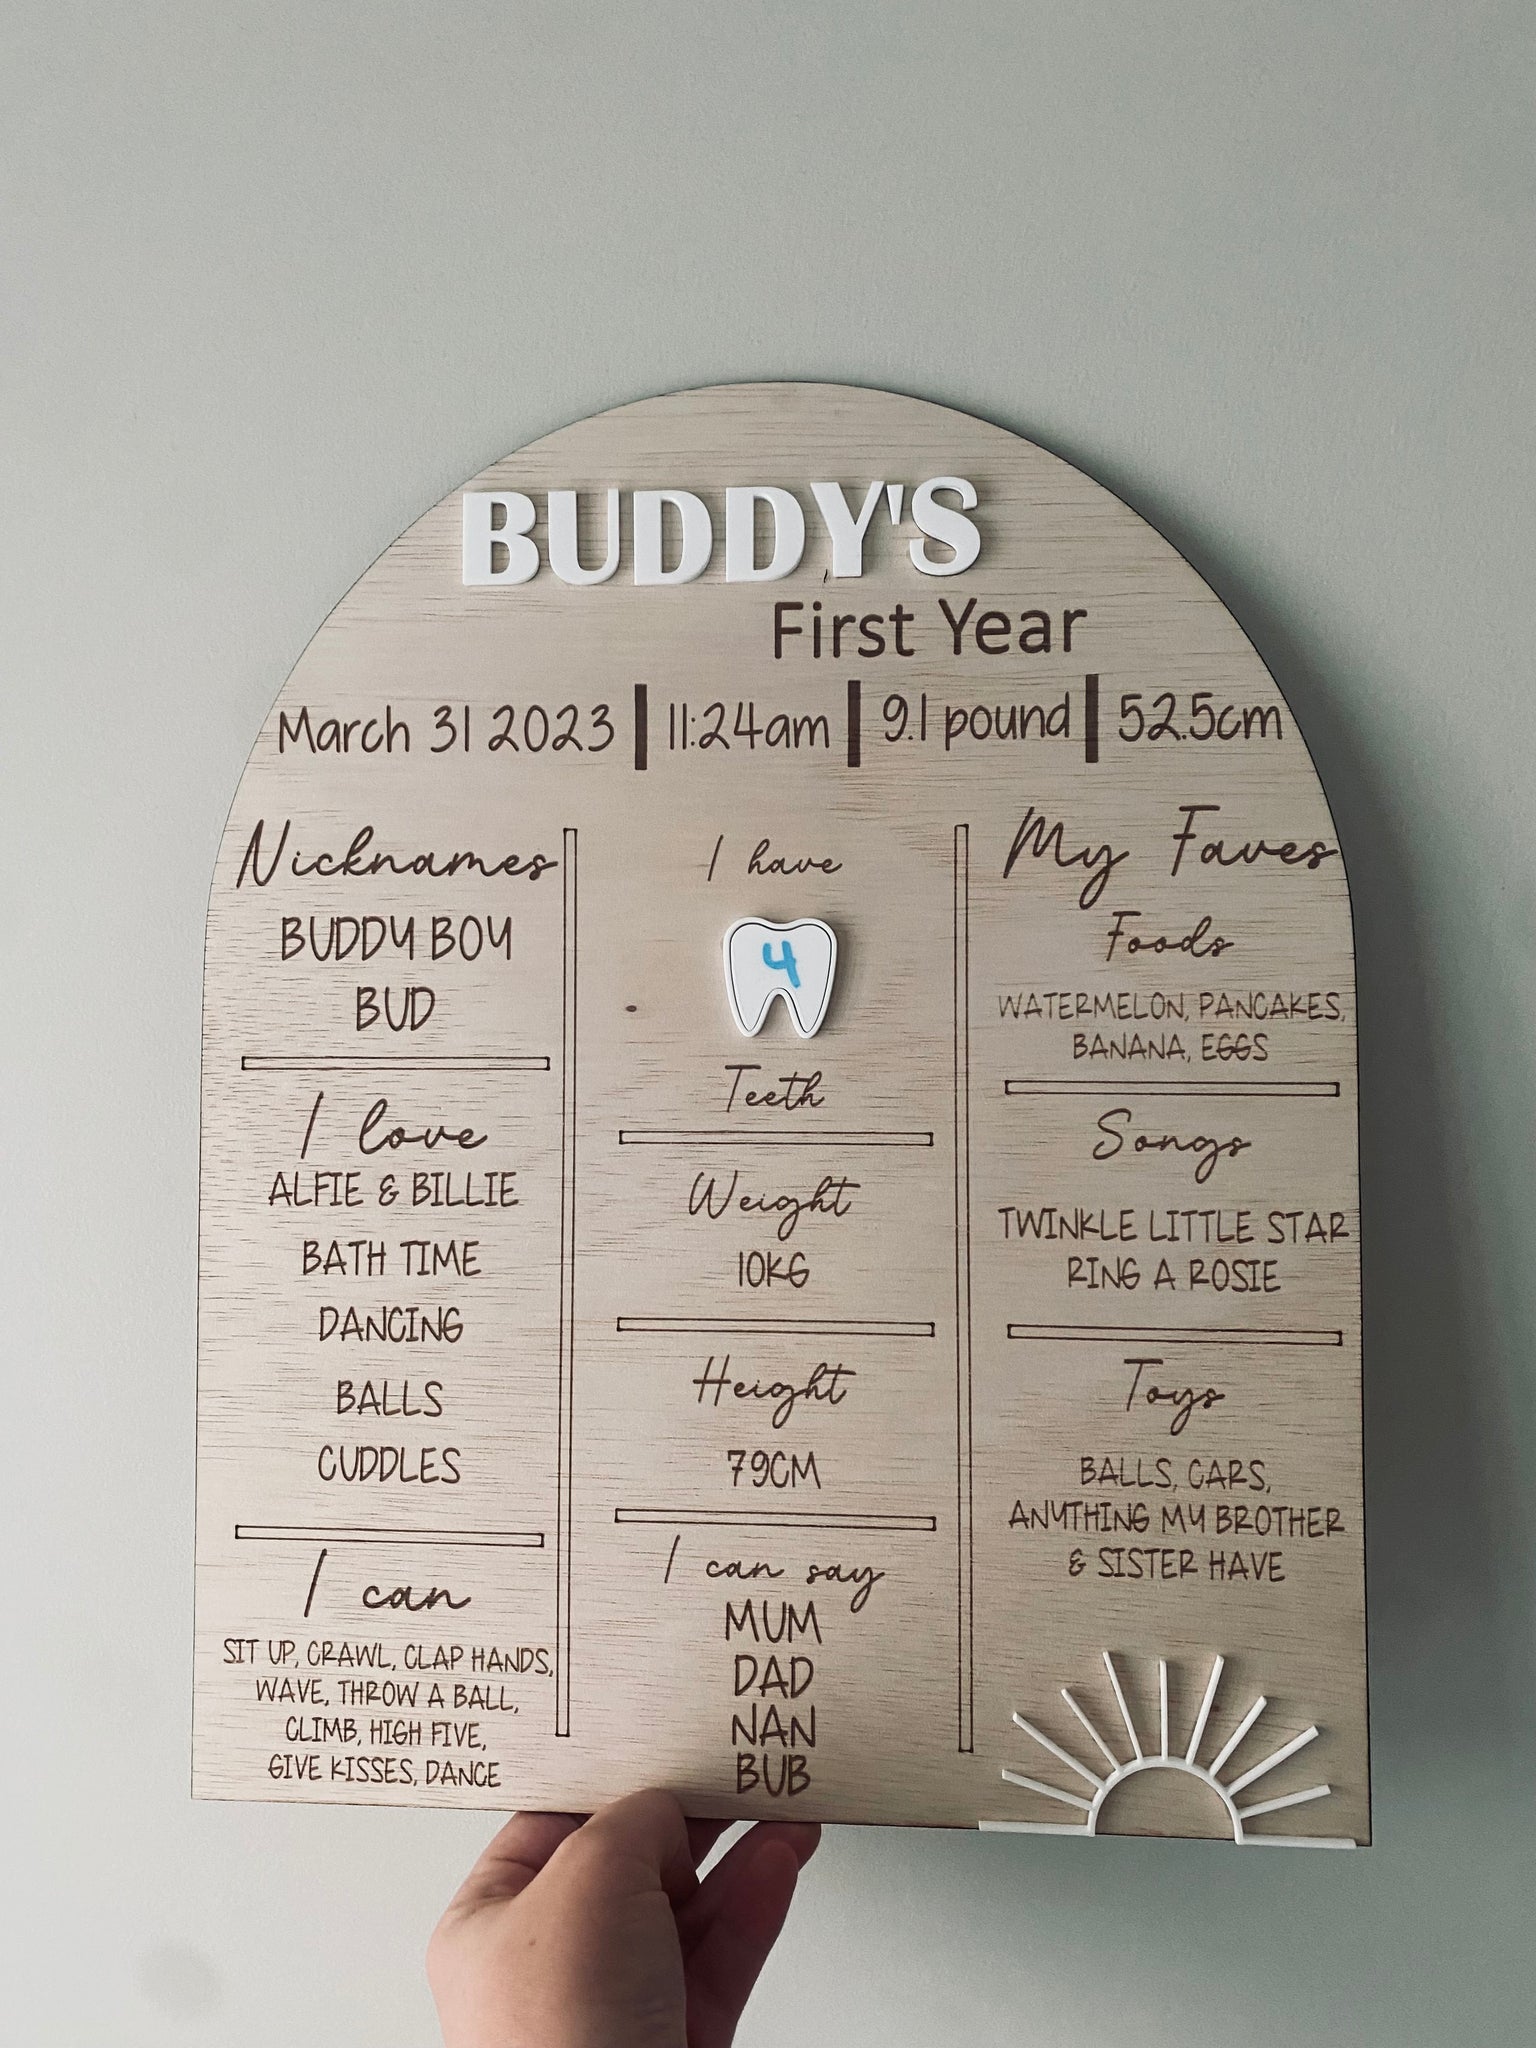 BUDDY'S
First Year
March 31 2023 | 11:24am | 9.1 pound | 52.5cm
Nicknames
BUDDY BOY
BUD
I love
ALFIE & BILLIE
BATH TIME
DANCING
BALLS
CUDDLES
I can
SIT UP, CRAWL, CLAP HANDS,
WAVE, THROW A BALL,
CLIMB, HIGH FIVE,
GIVE KISSES, DANCE
I have
4
Teeth
Weight
10KG
Height
79CM
I can say
MUM
DAD
NAN
BUB
My Faves
Foods
WATERMELON, PANCAKES,
BANANA, EGGS
Songs
TWINKLE LITTLE STAR
RING A ROSIE
Toys
BALLS, CARS,
ANYTHING MY BROTHER
& SISTER HAVE